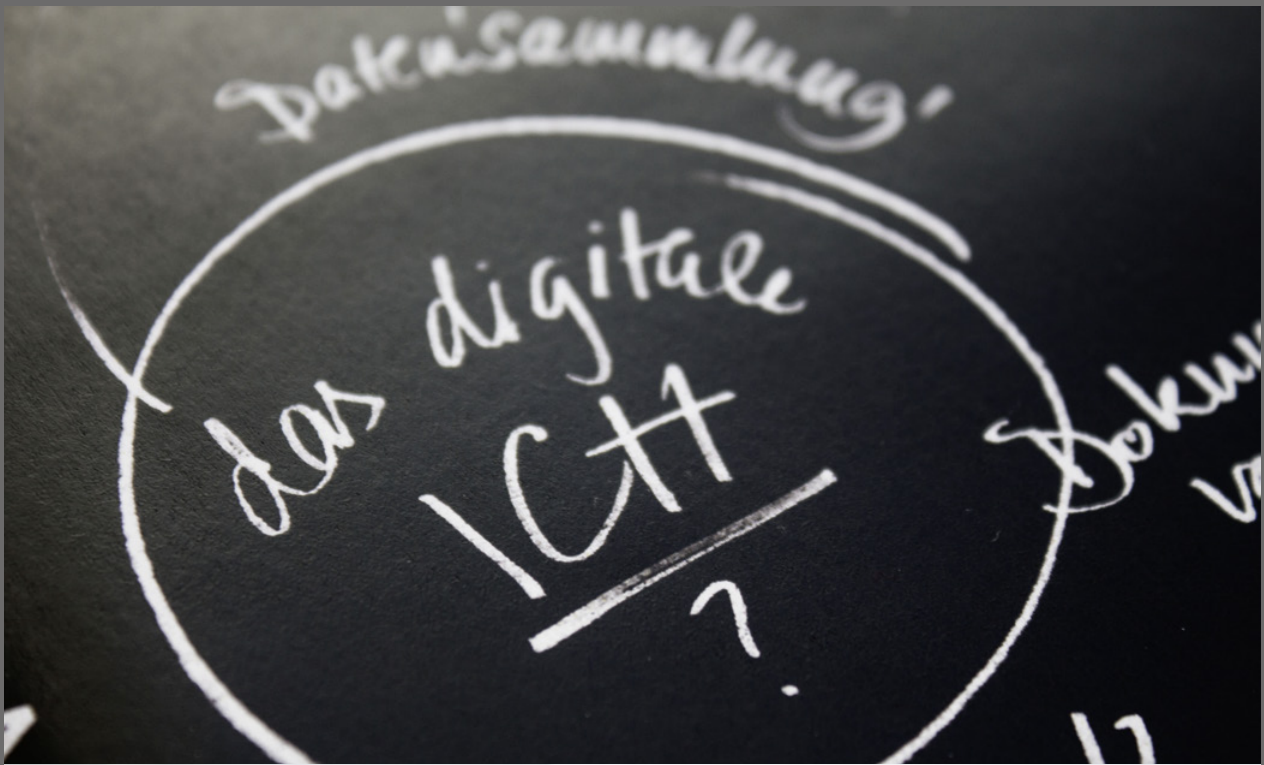 Datensammlung
das digitale
ICH
?